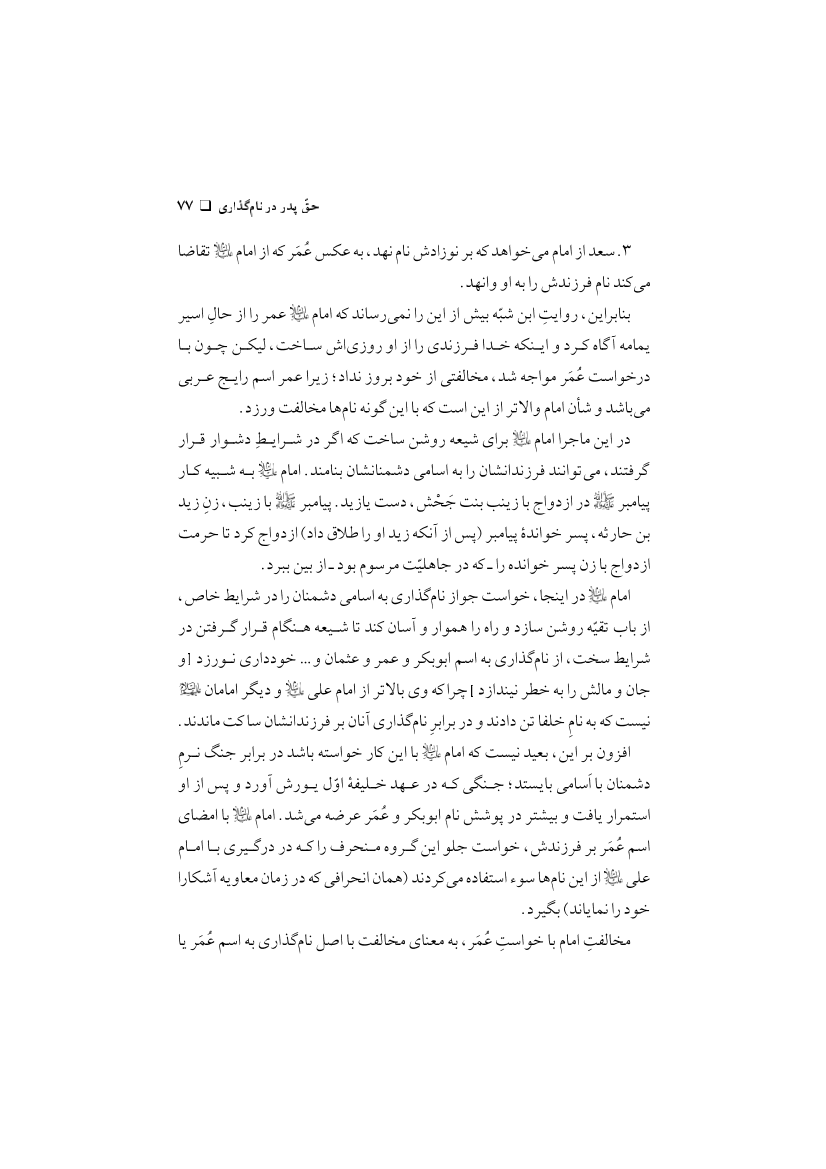 حقّ پدر در نام‌گذاری ❑ ۷۷
۳. سعد از امام می‌خواهد که بر نوزادش نام نهد، به عکس عُمَر که از امام علیه السلام تقاضا
می‌کند نام فرزندش را به او وانهد.
بنابراین، روایتِ ابن شبّه بیش از این را نمی‌رساند که امام علیه السلام عمر را از حالِ اسیر
یمامه آگاه کرد و اینکه خدا فرزندی را از او روزی‌اش ساخت، لیکن چون با
درخواست عُمَر مواجه شد، مخالفتی از خود بروز نداد؛ زیرا عمر اسم رایج عربی
می‌باشد و شأن امام والاتر از این است که با این گونه نام‌ها مخالفت ورزد.
در این ماجرا امام علیه السلام برای شیعه روشن ساخت که اگر در شرایطِ دشوار قرار
گرفتند، می‌توانند فرزندانشان را به اسامی دشمنانشان بنامند. امام علیه السلام به شبیه کار
پیامبر ﷺ در ازدواج با زینب بنت جَحْش، دست یازید. پیامبر ﷺ با زینب، زنِ زید
بن حارثه، پسر خواندهٔ پیامبر (پس از آنکه زید او را طلاق داد) ازدواج کرد تا حرمت
ازدواج با زن پسر خوانده را ـ که در جاهلیّت مرسوم بود ـ از بین ببرد.
امام علیه السلام در اینجا، خواست جواز نام‌گذاری به اسامی دشمنان را در شرایط خاص،
از باب تقیّه روشن سازد و راه را هموار و آسان کند تا شیعه هنگام قرار گرفتن در
شرایط سخت، از نام‌گذاری به اسم ابوبکر و عمر و عثمان و... خودداری نورزد [و
جان و مالش را به خطر نیندازد] چراکه وی بالاتر از امام علی علیه السلام و دیگر امامان علیهم السلام
نیست که به نامِ خلفا تن دادند و در برابرِ نام‌گذاری آنان بر فرزندانشان ساکت ماندند.
افزون بر این، بعید نیست که امام علیه السلام با این کار خواسته باشد در برابر جنگ نرمِ
دشمنان با اَسامی بایستد؛ جنگی که در عهد خلیفهٔ اوّل یورش آورد و پس از او
استمرار یافت و بیشتر در پوشش نام ابوبکر و عُمَر عرضه می‌شد. امام علیه السلام با امضای
اسم عُمَر بر فرزندش، خواست جلو این گروه منحرف را که در درگیری با امام
علی علیه السلام از این نام‌ها سوء استفاده می‌کردند (همان انحرافی که در زمان معاویه آشکارا
خود را نمایاند) بگیرد.
مخالفتِ امام با خواستِ عُمَر، به معنای مخالفت با اصل نام‌گذاری به اسم عُمَر یا